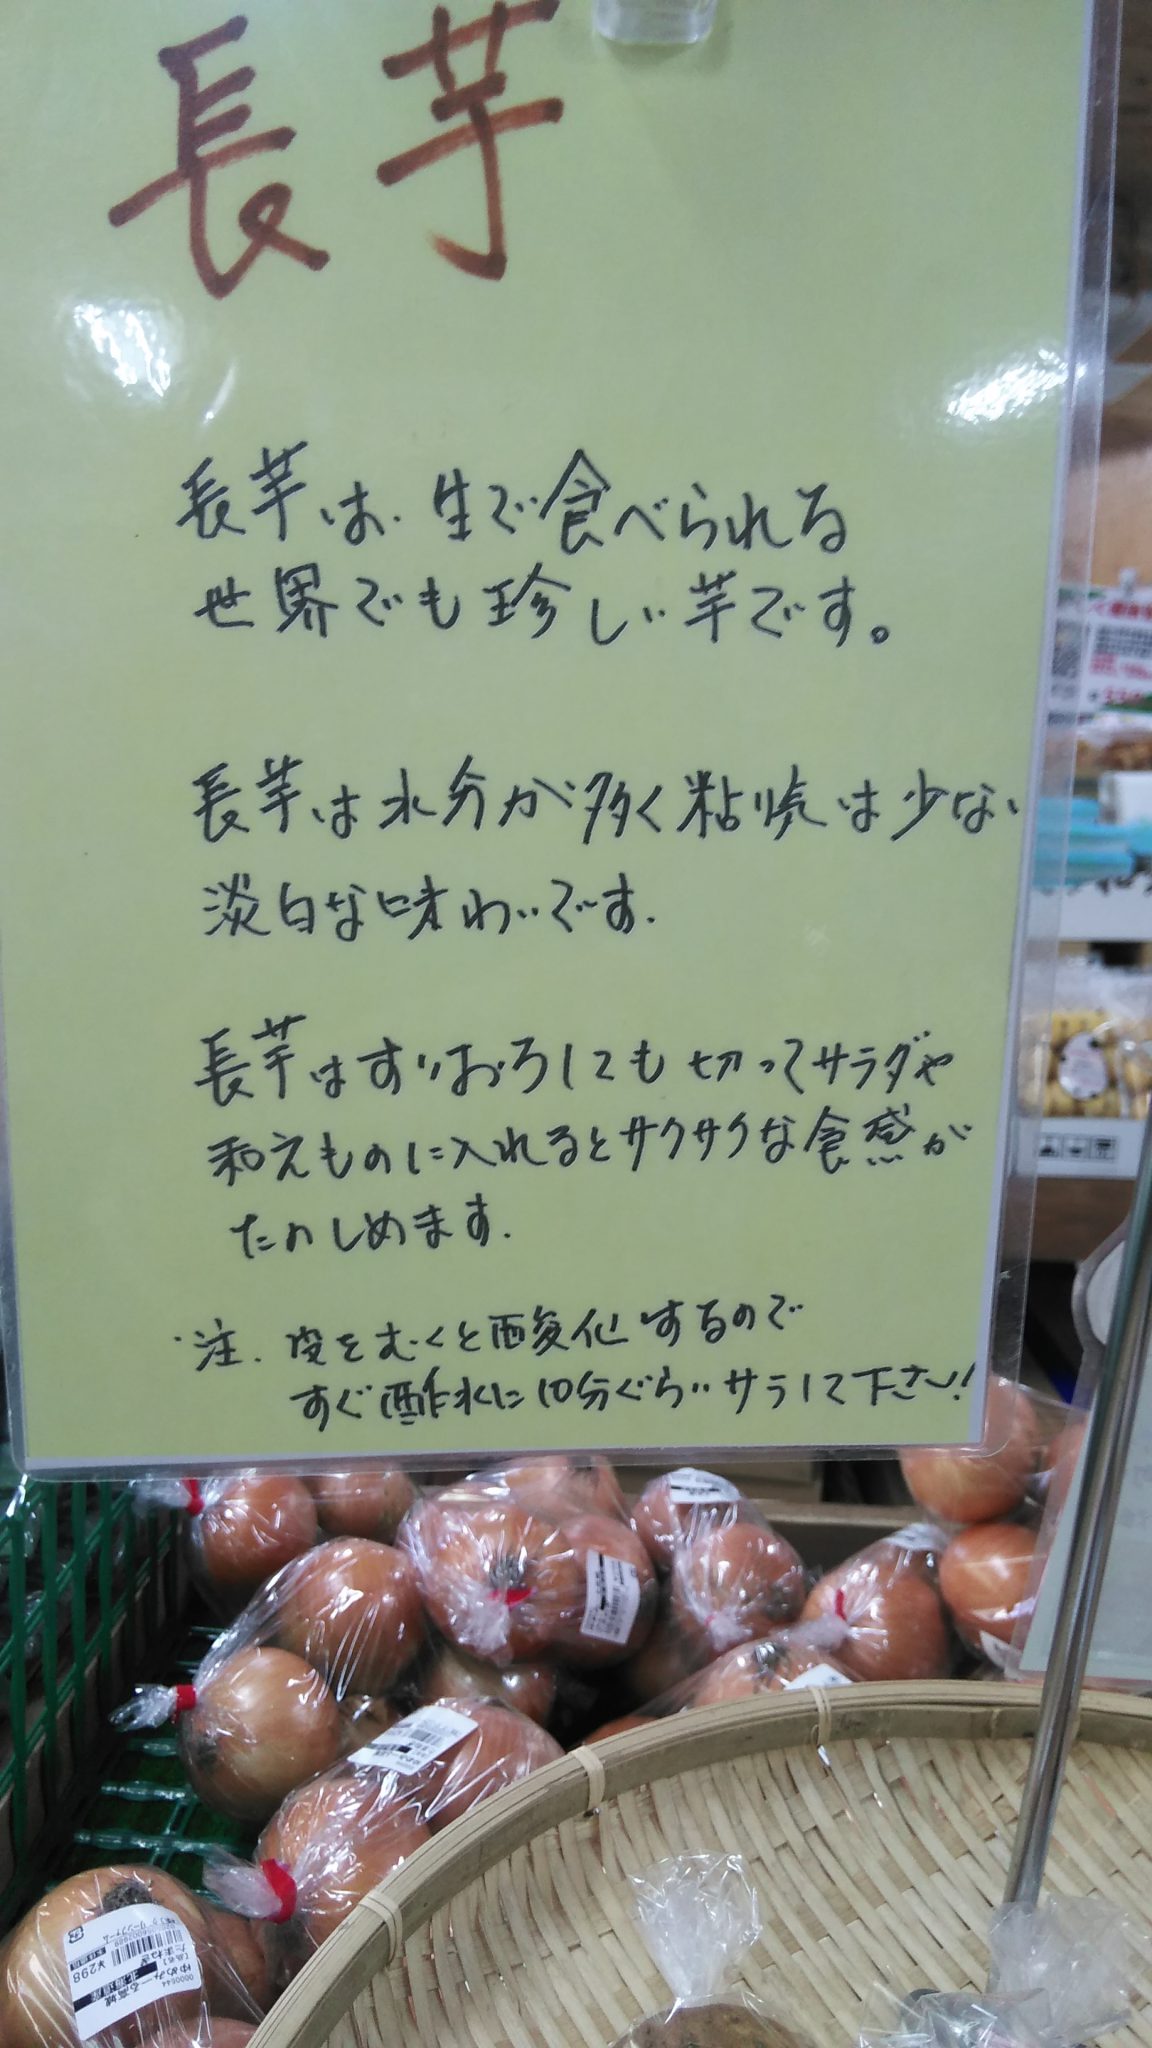 長芋
長芋は、生で食べられる
世界でも珍しい芋です。
長芋は水分が多く粘りは少ない
淡白な味わいです.
長芋はすりおろしても切ってサラダや
和えものに入れるとサクサクな食感が
たのしめます.
・注. 皮をむくと酸化するので
すぐ酢水に10分ぐらいサラして下さい!
ゆめみーる高城
北海道産
たまねぎ
¥298